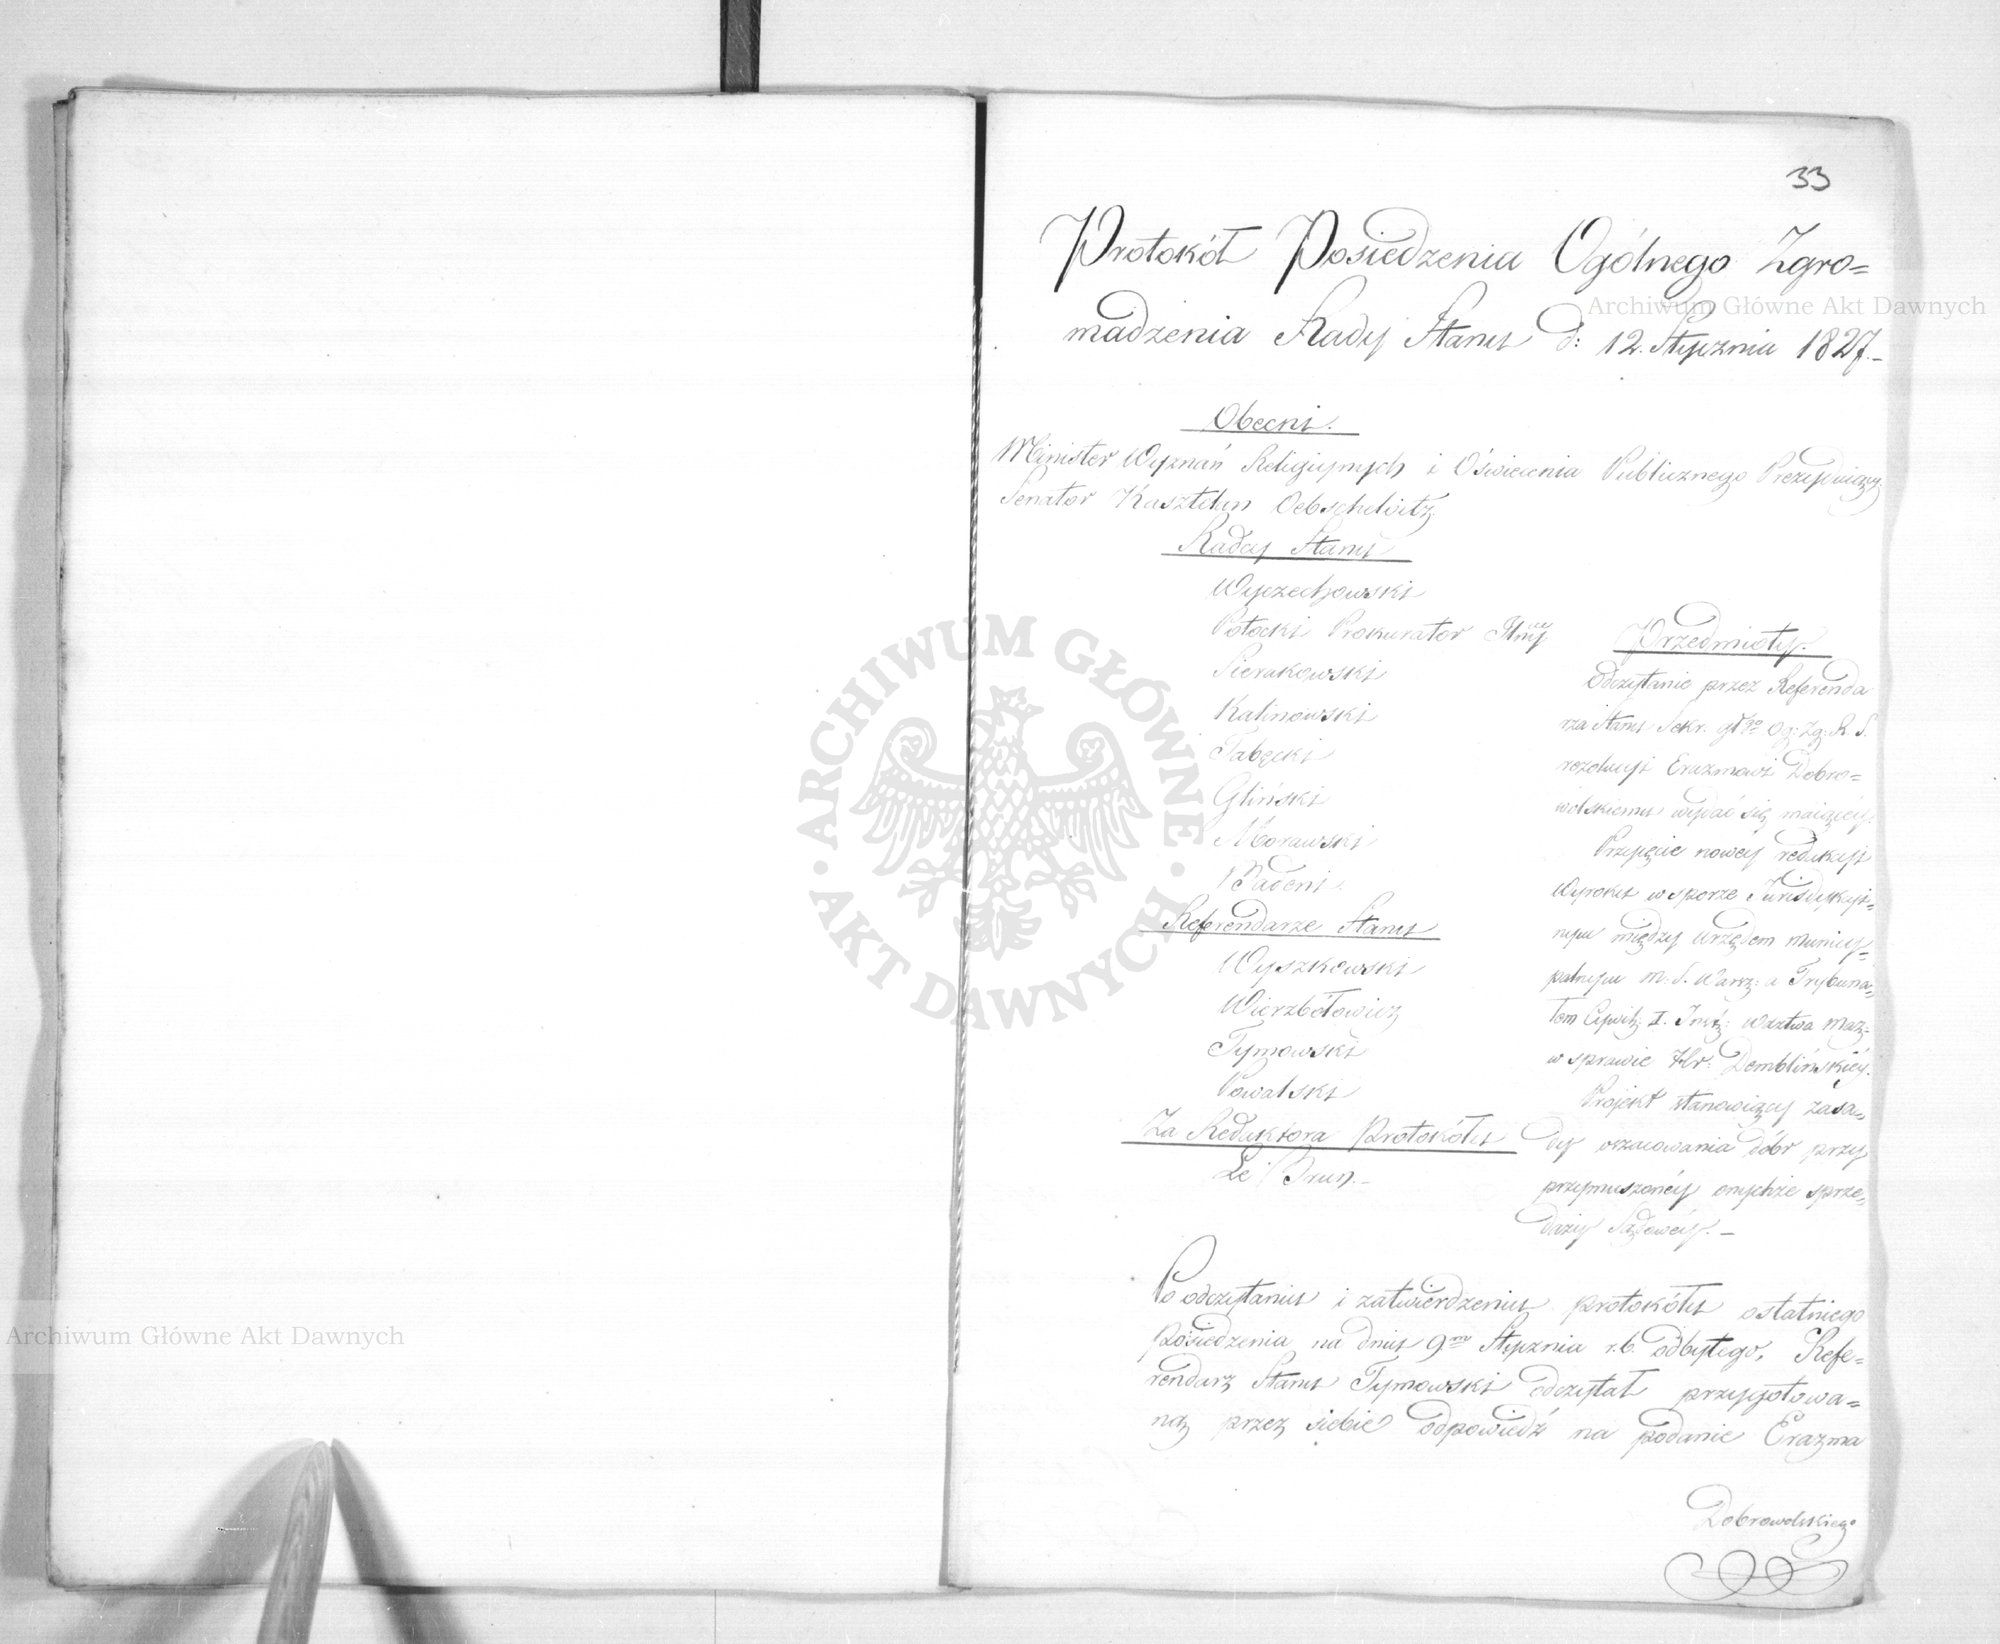 33
Protokół Posiedzenia Ogólnego Zgro=
madzenia Rady Stanu d: 12. Stycznia 1827.-
Obecni.
Minister Wyznań Religiynych i Oświecenia Publicznego Prezyduiący
Senator Kasztelan Oebschelwitz
Radcy Stanu
Wyczechowski
Potocki Prokurator
Sierakowski
Kalinowski
Tabęcki
Gliński
Morawski
Badeni.
Referendarze Stanu
Wyszkowski
Wierzbołowicz
Tymowski
Powalski
Za Redaktora Protokółu
Le Brun.-
Przedmioty.
Odczytanie przez Referenda
rza Stanu Sekr. głgo Og: Zg: R. S.
rezolucyi Erazmowi Dobro=
wolskiemu wydać się maiącéy.
Przyięcie nowey redakcyi
Wyroku w sporze Jurisdykcyi=
nym między Urzędem Municy=
palnym M: S. Warsz: a Trybuna=
łem Cywil: I. Inst: Wdztwa Maz:
w sprawie Hr: Demblińskiéy.
Projekt stanowiący zasa=
dy oszacowania dóbr przy
przymuszonéy onychże sprze=
daży Sądowéy.-
Po odczytaniu i zatwierdzeniu protokółu ostatniego
posiedzenia na dniu 9m Stycznia r.b. odbytego, Refe=
rendarz Stanu Tymowski odczytał przygotowa=
ną przez siebie odpowiedź na podanie Erazma
Dobrowolskiego
Archiwum Główne Akt Dawnych
ARCHIWUM GŁÓWNE · AKT DAWNYCH ·
Archiwum Główne Akt Dawnych